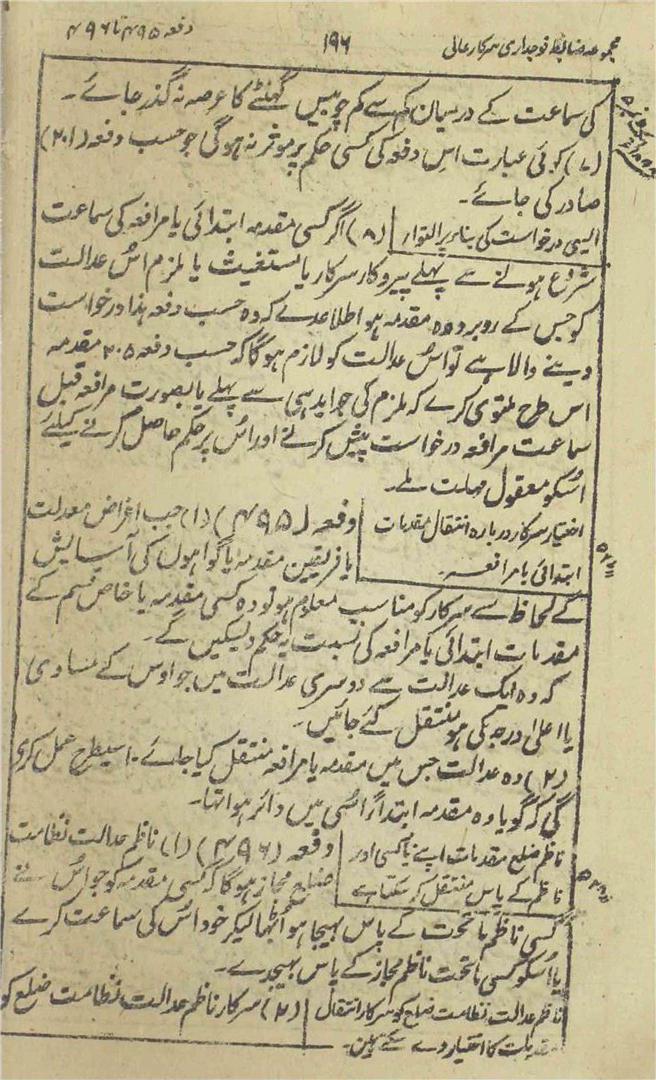 مجموعہ ضابطہ فوجداری سرکار عالی ۱۹۶ دفعہ ۴۹۵ تا ۴۹۶
کی سماعت کے درمیان کم سے کم چوبیس گھنٹے کا عرصہ نہ گذر جائے۔
(۷) کوئی عبارت اس دفعہ کی کسی حکم پر موثر نہ ہوگی جو حسب دفعہ (۲۰۱)
صادر کی جائے۔
ایسی درخواست کی بناء پر التواء (۸) اگر کسی مقدمہ ابتدائی یا مرافعہ کی سماعت
شروع ہونے سے پہلے پیروکار سرکار یا مستغیث یا ملزم اس عدالت
کو جس کے روبرو وہ مقدمہ ہو اطلاع دے کہ وہ حسب دفعہ ہذا درخواست
دینے والا ہے تو اس عدالت کو لازم ہوگا کہ حسب دفعہ ۲۰۵ مقدمہ
اس طرح ملتوی کرے کہ ملزم کی جوابدہی سے پہلے یا بصورت مرافعہ قبل
سماعت مرافعہ درخواست پیش کرنے اور اس پر حکم حاصل کرنے کیلئے
اسکو معقول مہلت ملے۔
اختیار سرکار دربارہ انتقال مقدمات
ابتدائی یا مرافعہ۔
دفعہ (۴۹۵) (۱) جب اغراض معدلت
یا فریقین مقدمہ یا گواہوں کی آسایش
کے لحاظ سے سرکار کو مناسب معلوم ہو تو وہ کسی مقدمہ یا خاص قسم کے
مقدمات ابتدائی یا مرافعہ کی نسبت یہ حکم دیسکیں گے۔
کہ وہ ایک عدالت سے دوسری عدالت میں جو اوس کے مساوی
یا اعلیٰ درجہ کی ہو منتقل کئے جائیں۔
(۲) وہ عدالت جس میں مقدمہ یا مرافعہ منتقل کیا جائے۔ اسیطرح عمل کرے
گی کہ گویا وہ مقدمہ ابتداً اسی میں دائر ہوا تھا۔
ناظم ضلع مقدمات اپنے یا کسی اور
ناظم کے پاس منتقل کر سکتا ہے
دفعہ (۴۹۶) (۱) ناظم عدالت نظامت
ضلع مجاز ہوگا کہ کسی مقدمہ کو جو اس نے
کسی ناظم ماتحت کے پاس بھیجا ہو اٹھا لیکر خود اس کی سماعت کرے
یا اسکو کسی ماتحت ناظم مجاز کے پاس بھیجدے۔
ناظم عدالت نظامت ضلع کو سرکار انتقال
مقدمات کا اختیار دے سکتے ہیں۔
(۲) سرکار ناظم عدالت نظامت ضلع کو